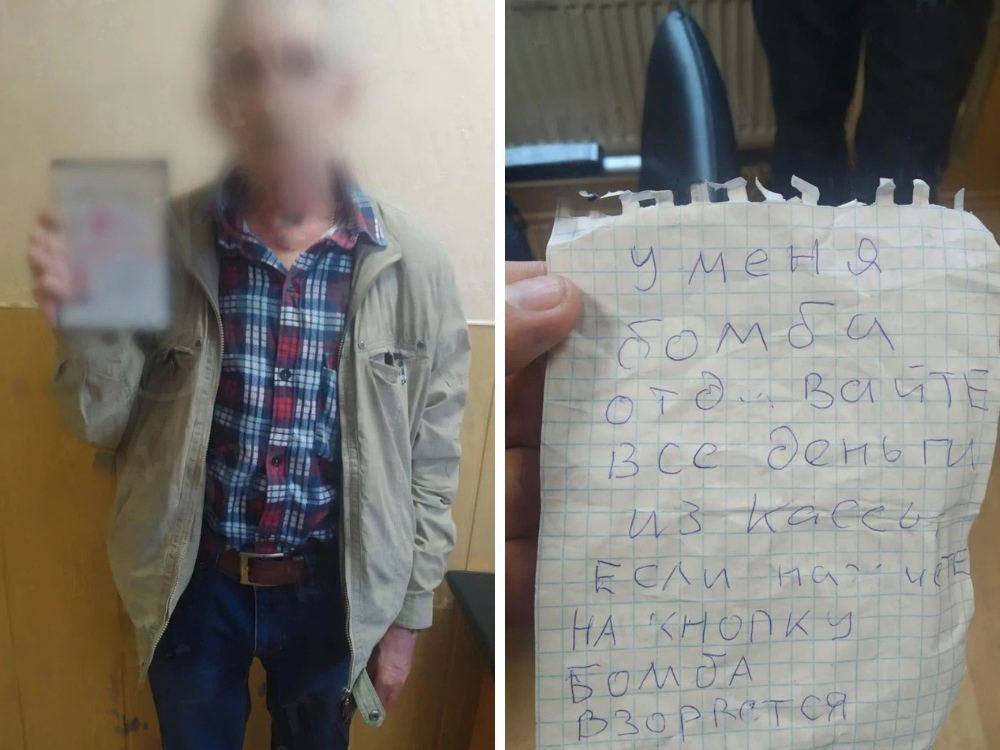 у меня
бомба
отд... вайтЕ
все деньги
из кассы
Если
НА КНОПКУ
БОМБА
ВЗОРВЕТСЯ